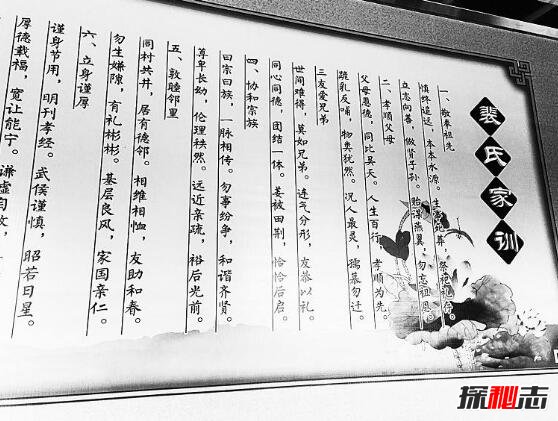 裴氏家训
一、敬奉祖先
慎终追远，木本水源。生死葬，祭礼。
立志向善，做贤子孙。贻谋燕翼，勿忘祖恩。
二、孝顺父母
父母恩德，同比昊天。人生百行，孝顺为先。
跪乳反哺，物类犹然。况人最灵，孺慕勿迁。
三友爱兄弟
世间难得，莫如兄弟。连气分形，友恭以礼。
同心同德，团结一体。姜被田荆，恰恰后启。
四、协和宗族
曰宗曰族，一脉相传。勿事纷争，和谐齐贤。
尊卑长幼，伦理秩然。远近亲疏，裕后光前。
五、敦睦邻里
同村共井，居有德邻。相维相恤，友助和春。
勿生嫌隙，有礼彬彬。基层良风，家国亲仁。
六、立身谨厚
谨身节用，明刊孝经。武侯谨慎，昭若日星。
厚德载福，宽让能宁。谦虚自牧，
探秘志